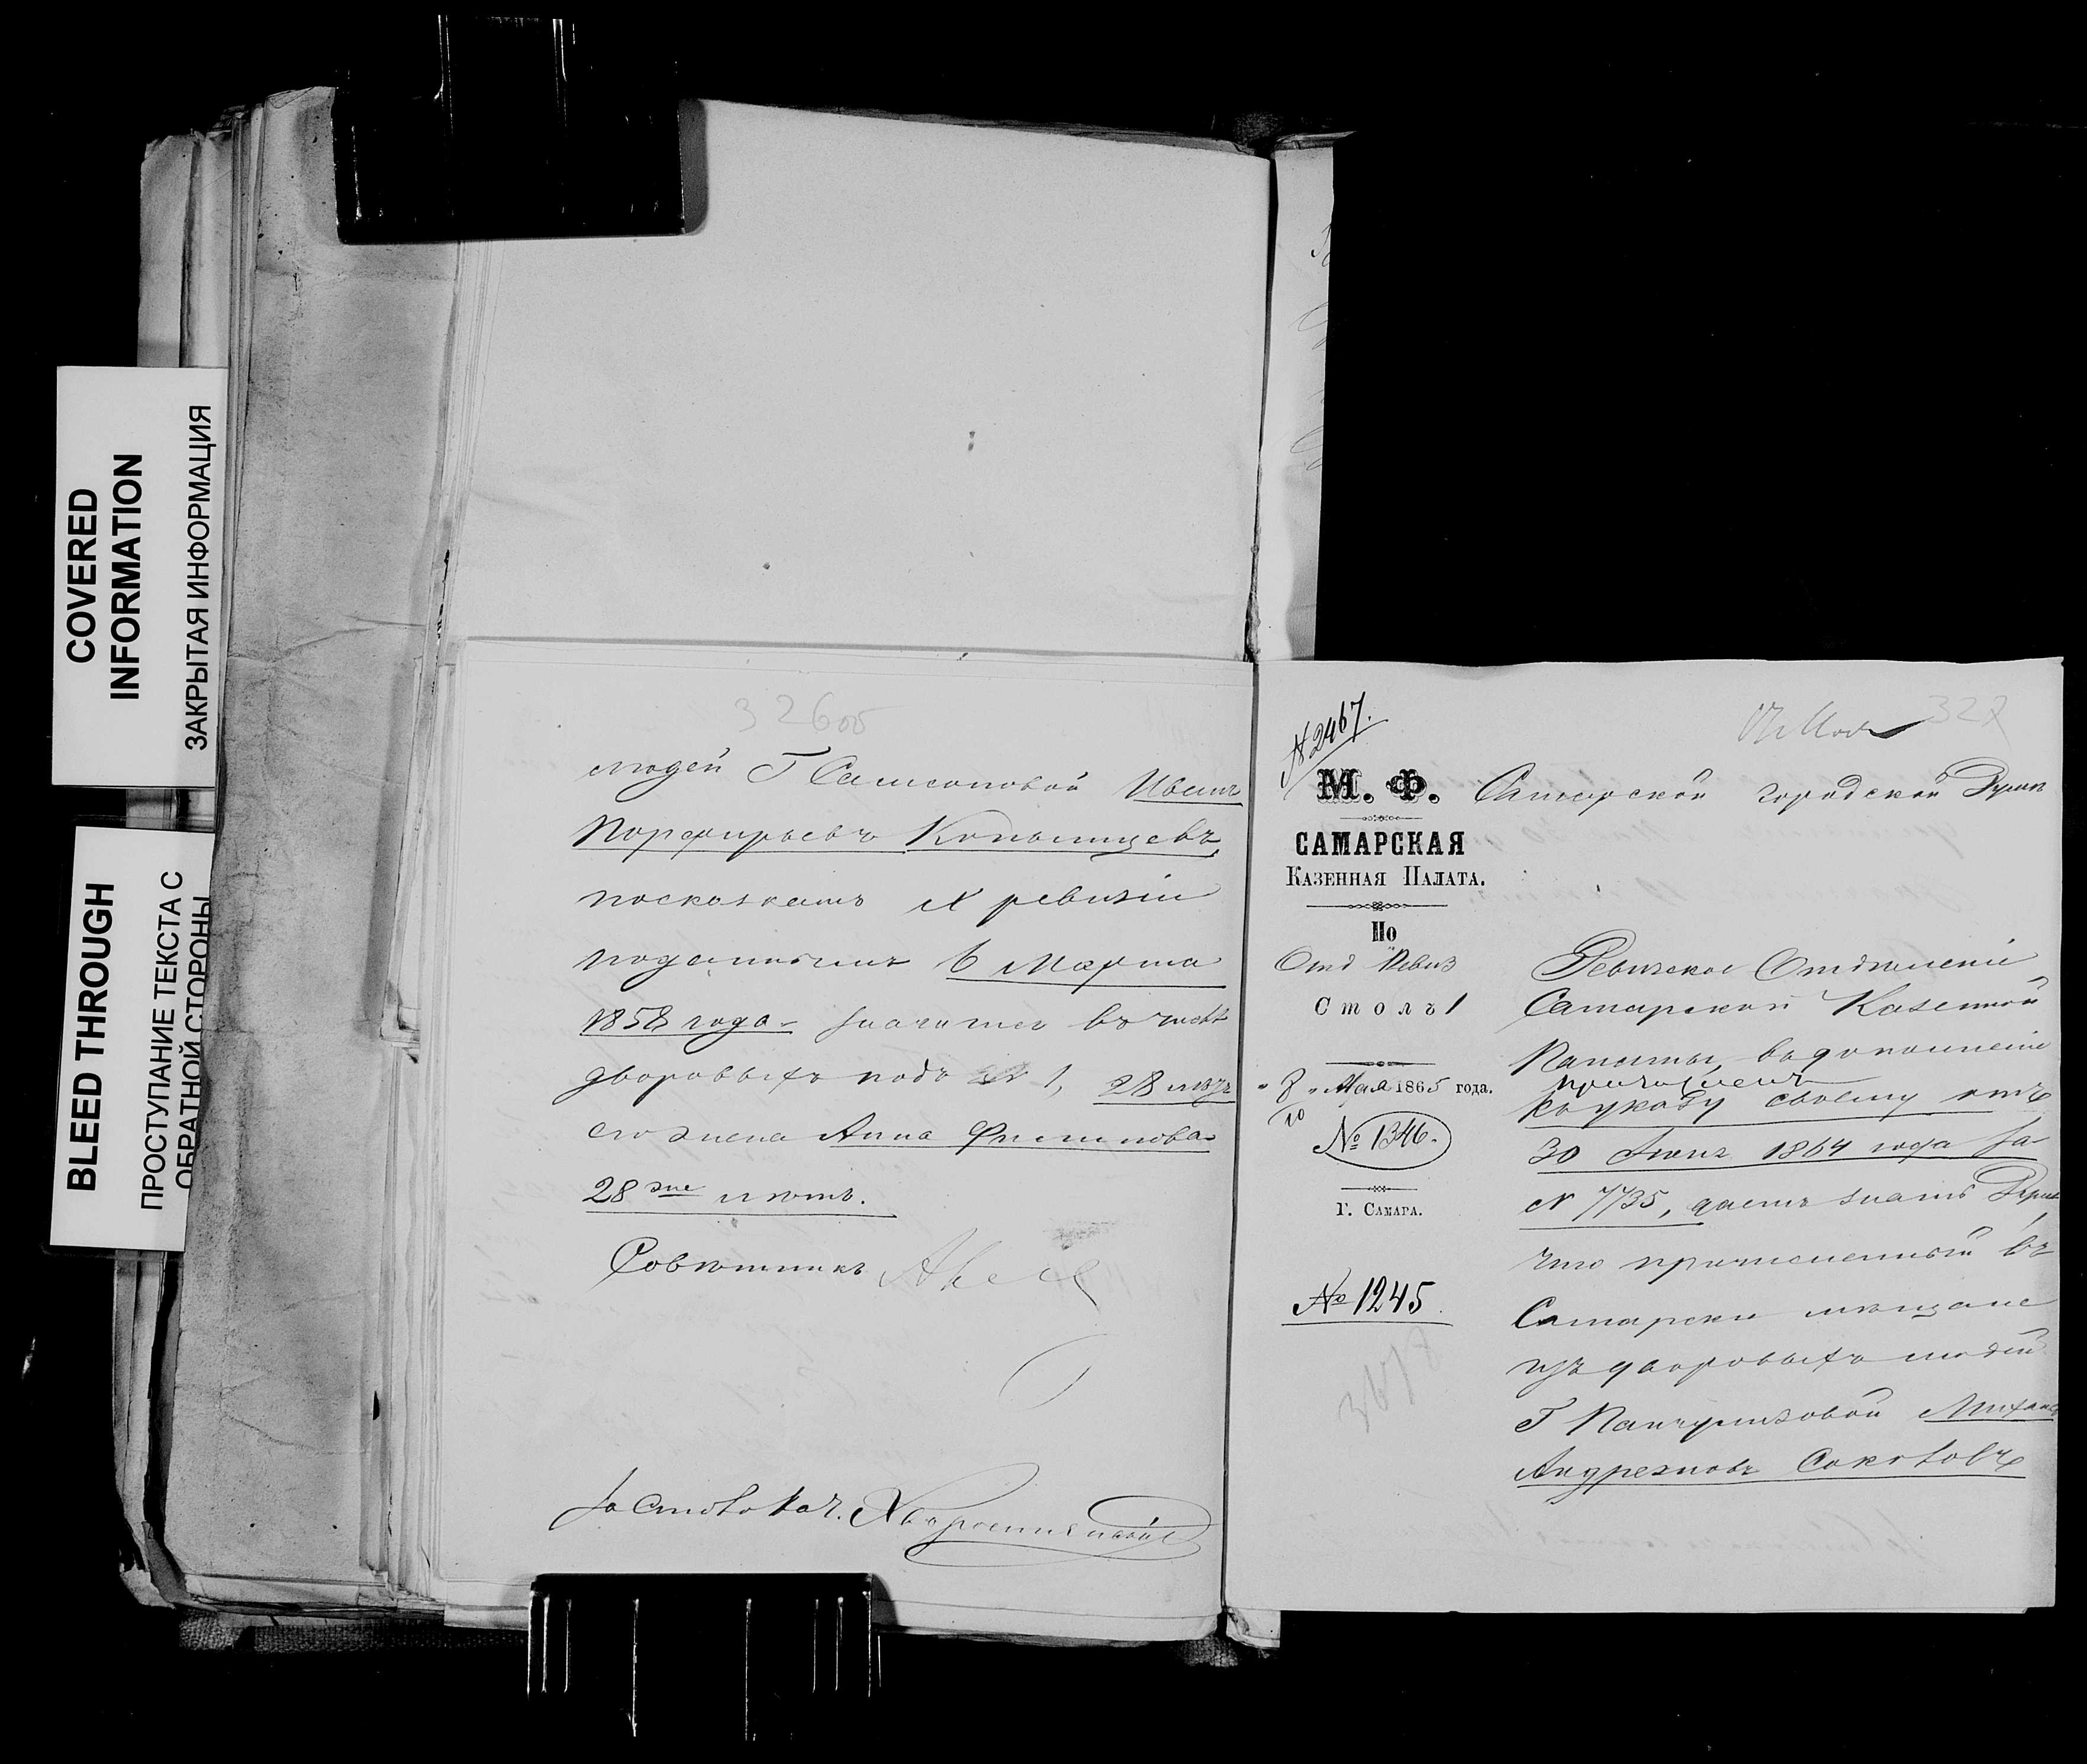 COVERED
INFORMATION
ЗАКРЫТАЯ ИНФОРМАЦИЯ
BLEED THROUGH
ПРОСТУПАНИЕ ТЕКСТА С
ОБРАТНОЙ СТОРОНЫ
326об
людей Г Самсоновой Иванъ
Порфирьевъ Копытцевъ,
посказкамъ X ревизіи
поданнымъ 6 Марта
1858 года значится въ числѣ
дворовыхъ подъ № 1, 28 лѣтъ
его жена Анна Филипова
28 ми лѣтъ.
Совѣтникъ
За Столонач.
№ 2467.
327
М. Ф.
САМАРСКАЯ
КАЗЕННАЯ ПАЛАТА.
По
Отд Ревиз
Столъ 1
" 8 " Мая 1865 года.
10
№ 1346.
Г. САМАРА.
№ 1245
Самарской городской Думѣ
Ревизское Отдѣленіе
Самарской Казенной
Палаты, въдополненіе
причислен
къ указу своему отъ
30 Іюня 1864 года за
№ 7735, даетъ знать Думѣ
что причисленный въ
Самарскіе мѣщане
изъ дворовыхъ людей
Г Панчулизовой Михаилъ
Андреяновъ Соколовъ